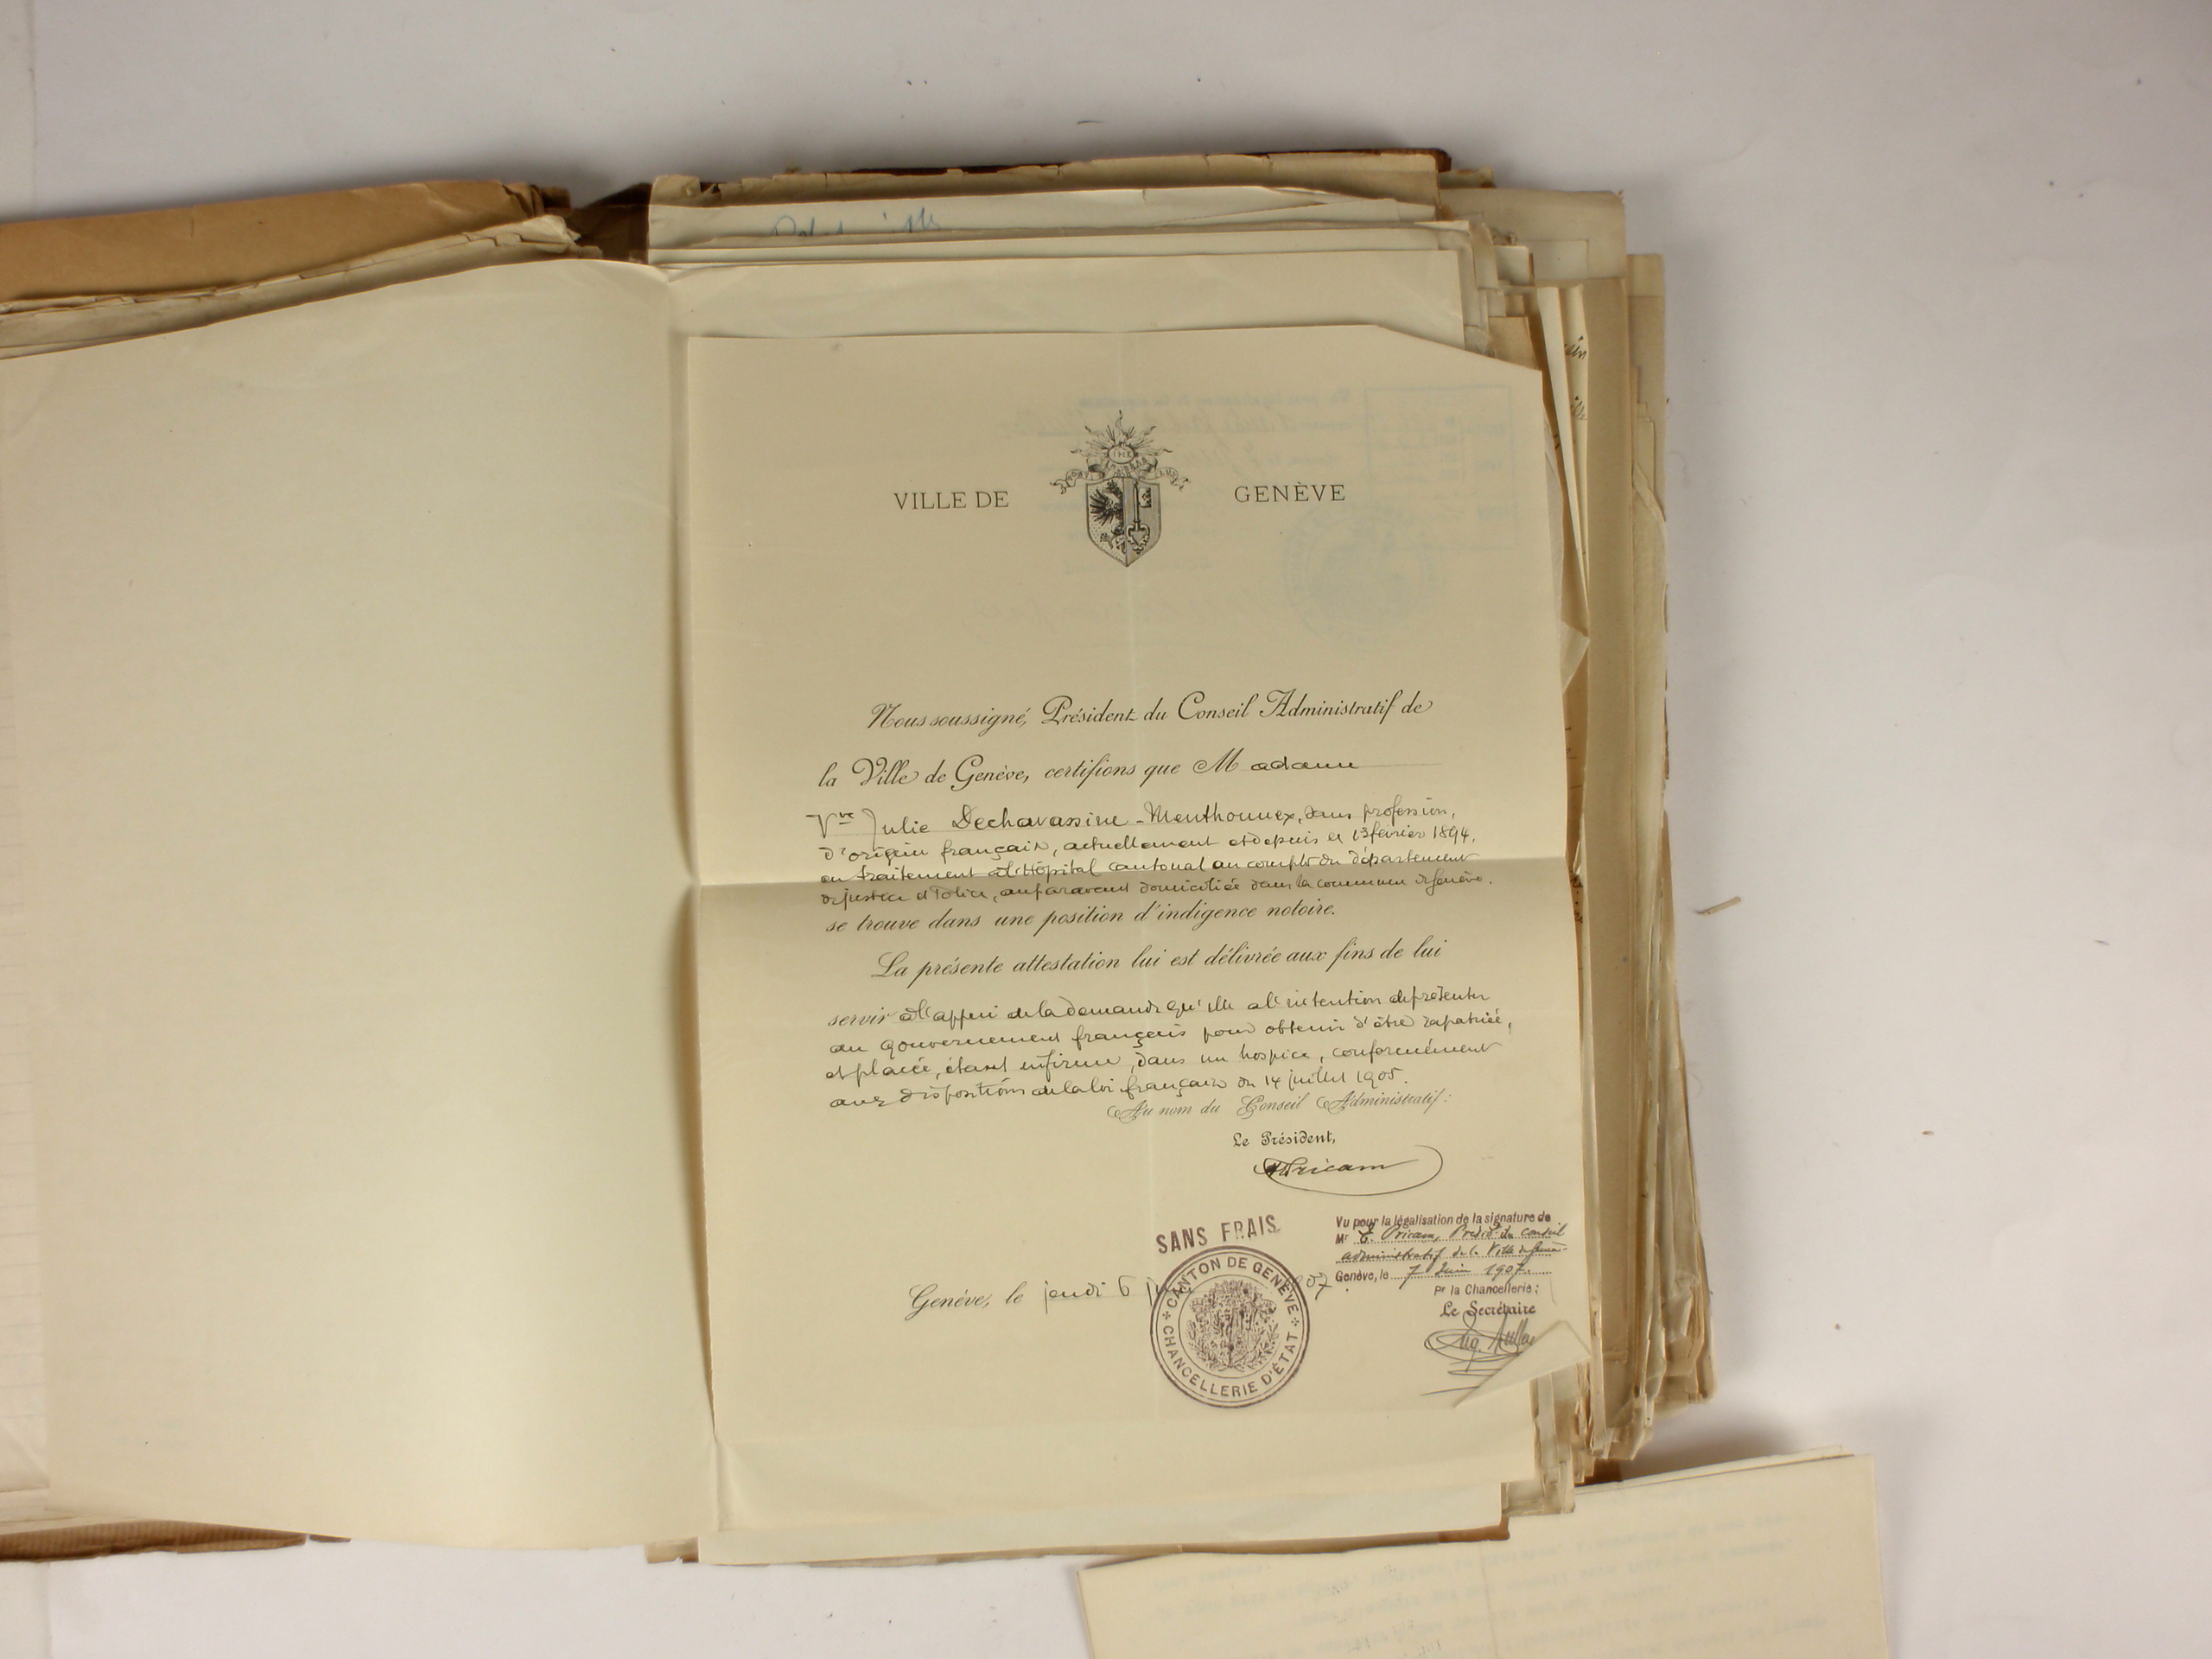 VILLE DE GENÈVE
Nous soussigné, Président du Conseil Administratif de
la Ville de Genève, certifions que Madame
Vve Julie Dechavassine-Menthonnex, sans profession,
d'origine française, actuellement et depuis le 13 février 1894,
en traitement à l'Hôpital cantonal au compte du département
de justice et Police, auparavant domiciliée dans la commune de Genève.
se trouve dans une position d'indigence notoire.
La présente attestation lui est délivrée aux fins de lui
servir à l'appui de la demande qu'elle a l'intention de présenter
au gouvernement français pour obtenir d'être rapatriée,
et placée, étant infirme, dans un hospice, conformément
aux dispositions de la loi française du 14 juillet 1905.
Au nom du Conseil Administratif:
Le Président,
Pricam
SANS FRAIS
Vu pour la légalisation de la signature de
Mr E. Pricam, Présidt du Conseil
administratif de la Ville de Genève
Genève, le 7 Juin 1907.
Pr la Chancellerie:
Le Secrétaire
Genève, le jeudi 6 07
CANTON DE GENÈVE
CHANCELLERIE D'ÉTAT